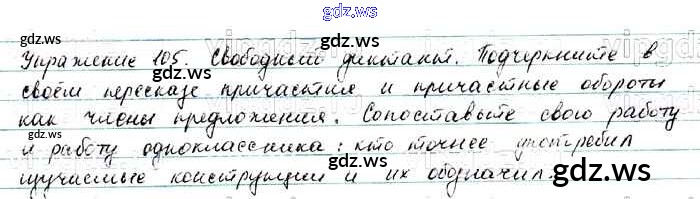 gdz.ws
gdz.ws gdz.ws
Упражнение 105. Свободный диктант. Подчеркните в
gdz.ws gdz.ws
своём пересказе причастия и причастные обороты
gdz.ws
как члены предложения. Сопоставьте свою работу
gdz.ws gdz.ws
и работу одноклассника: кто точнее употребил
gdz.ws
изучаемые конструкции и их обозначил.
gdz.ws gdz.ws